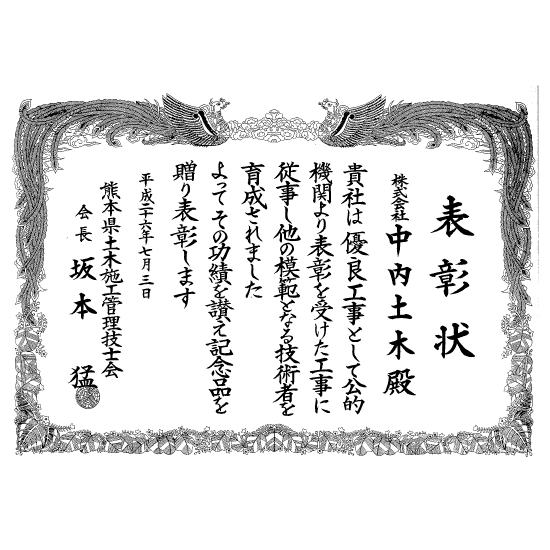 表彰状
株式会社 中内土木殿
貴社は優良工事として公的
機関より表彰を受けた工事に
従事し他の模範となる技術者を
育成されました
よってその功績を讃え記念品を
贈り表彰します
平成二十六年七月三日
熊本県土木施工管理技士会
会長 坂本 猛